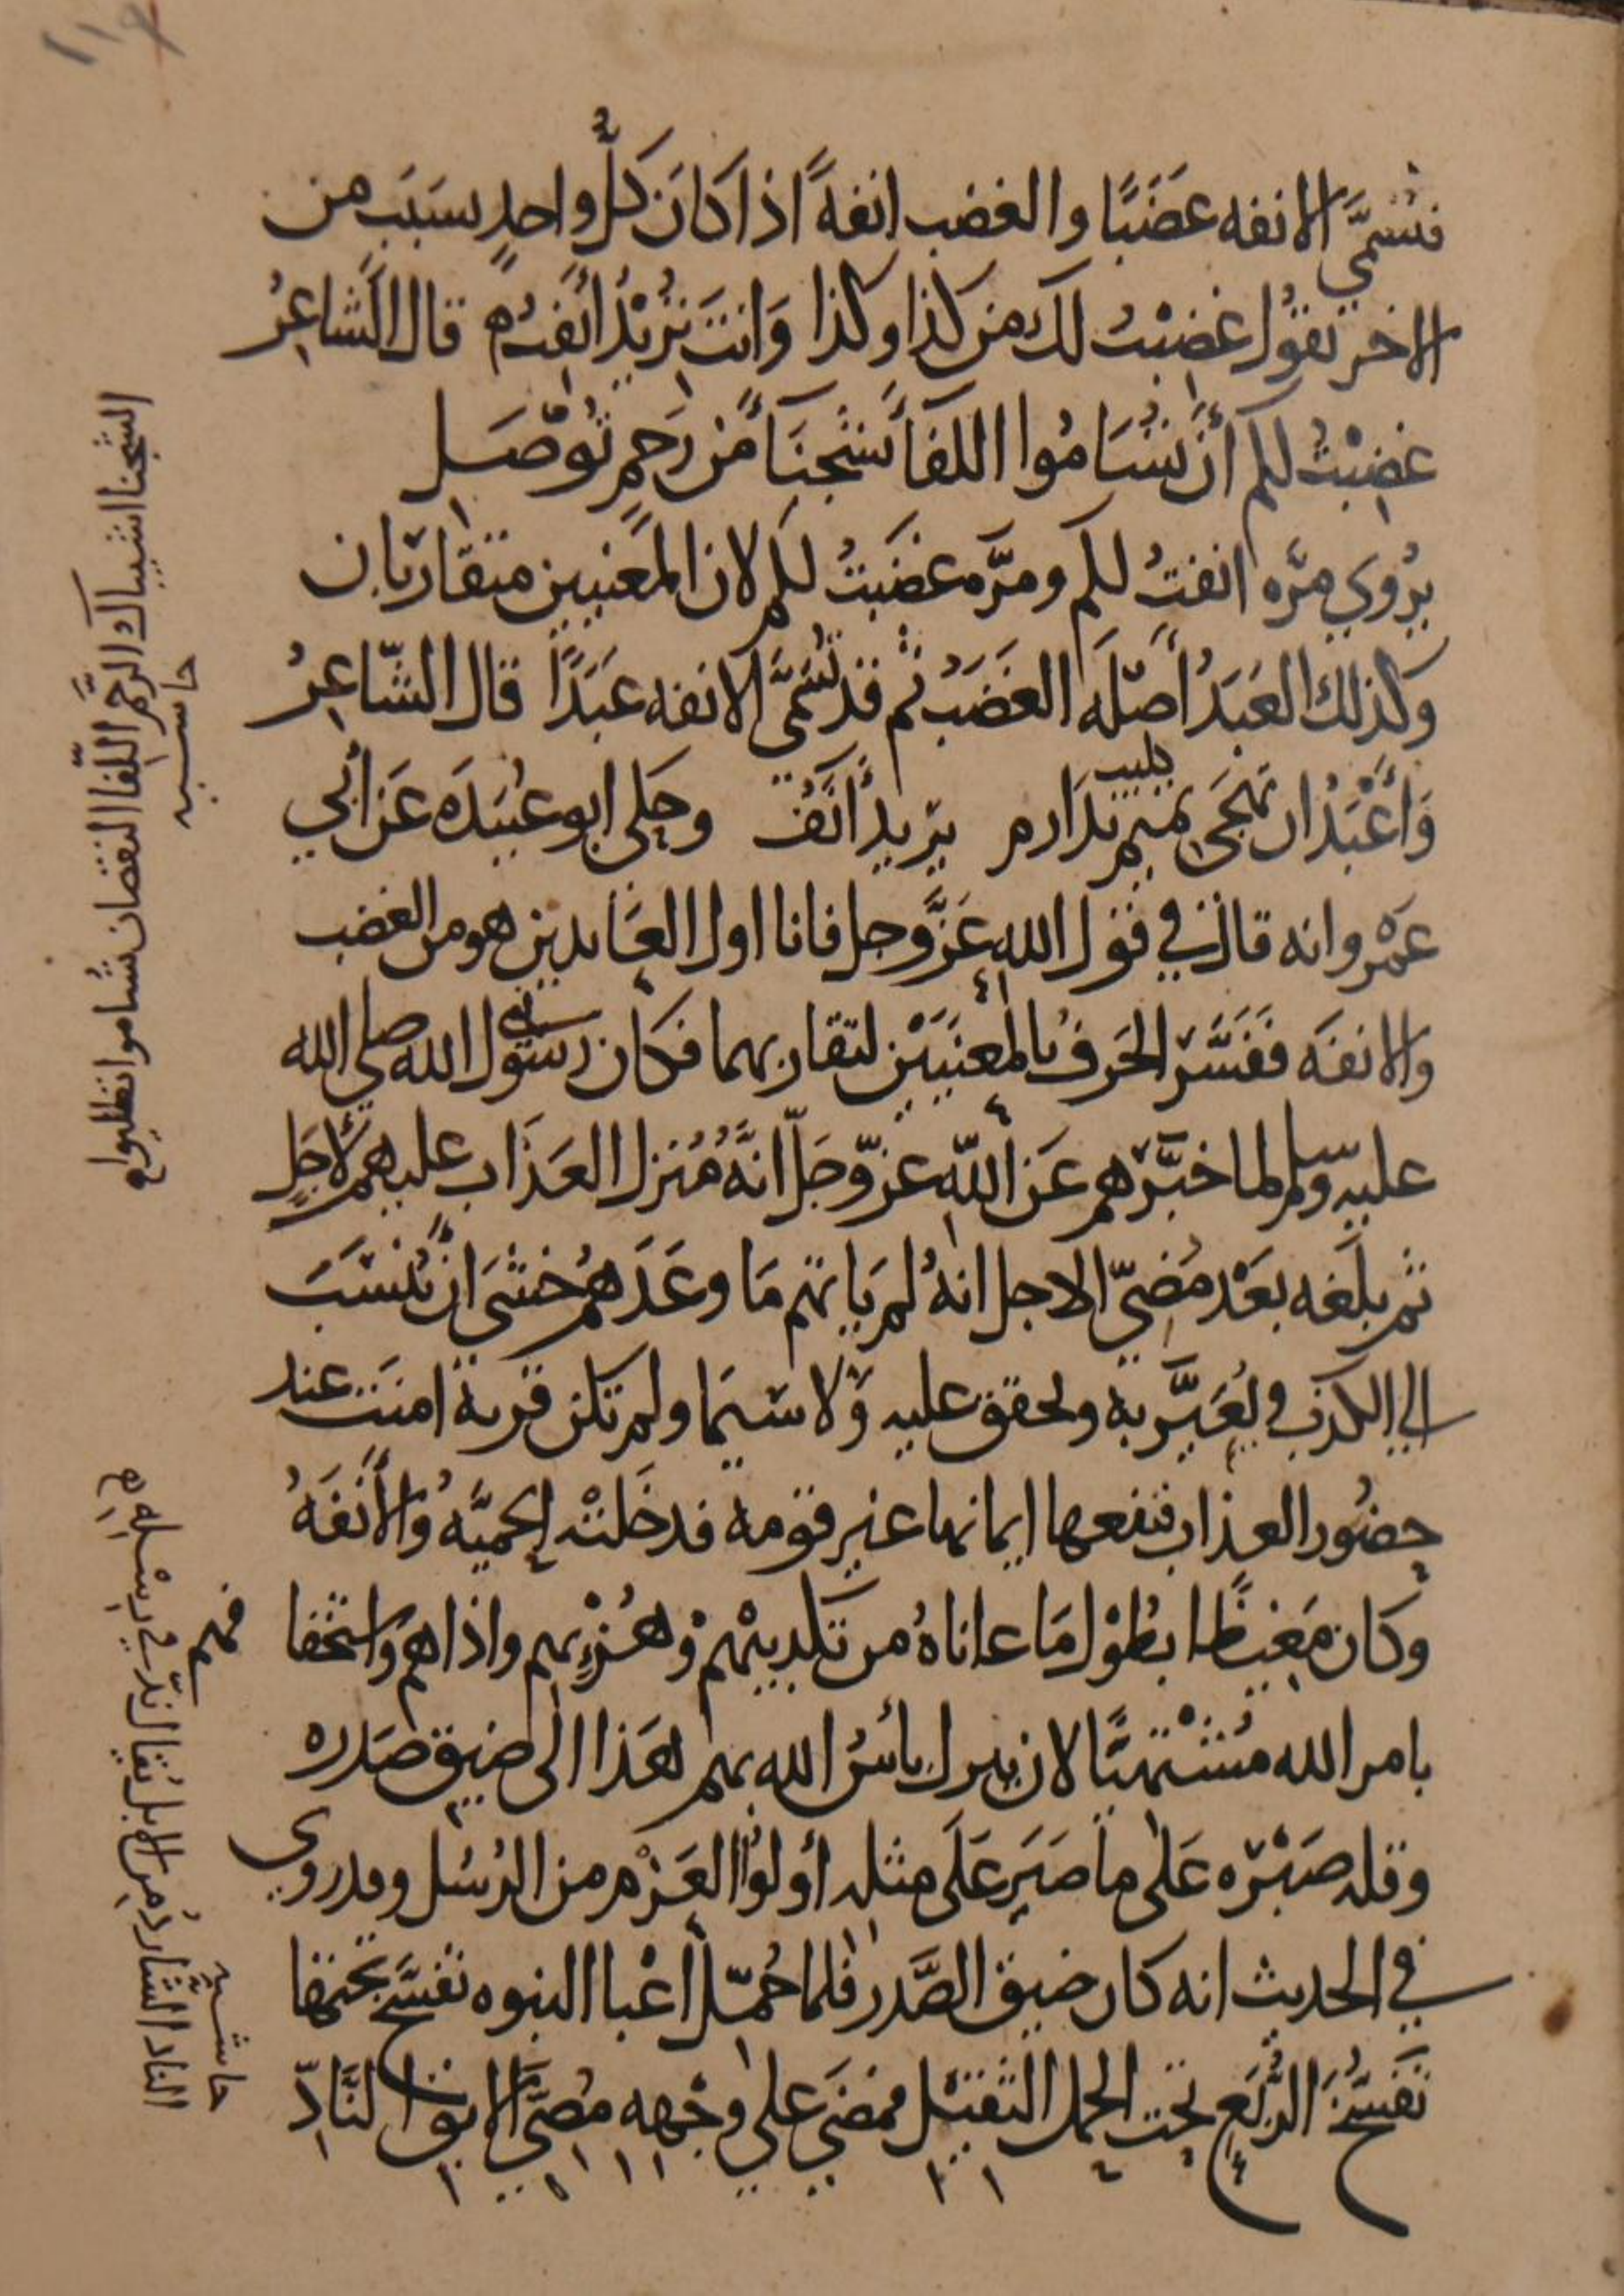 فتسمَّي الانفه غضَبًا والغضب انفةً اذا كانَ كلُّ واحدٍ بسَبَب من
الاخر تقوُل غضبْتُ لك من كذا وكذا وَانت تريْدُ أنِفتُ م قال الشاعِرُ
غضبْتُ لكم أن تسَامُوا اللفَا بشجنَا من رَحِمٍ تُوْصَل
يُروي مرّه انفتُ لكم ومرَّه غضَبتُ لكم لان المعَنيين متقارَبان
وكذلك العَبَدُ أصْلَه الغَضَبُ ثم قد تُسَمَّى الانفه عَبَدًا قال الشّاعِرُ
وَأعْبَدُ ان تهجَى تميم بدَارم يرَيدُ أنَف وحَكى ابو عبُيَدَه عَن أبي
كليب
عَمْرو انه قال في قول الله عَزَّ وجل فانا اول العَابدين هو من الغضب
والانفَه ففَسَّرَ الحَرفُ بالمعنيَيْن لتقاربهما فكان رسُول الله صلي الله
عليه وسلم لما خبَّرَهم عَن الله عزّ وجَلّ انَّهُ مُنزل العَذَاب عليهم لاجَلٍ
ثم بلَغه بعَد مُضيّ الاجل انهُ لم يَاتهم مَا وعَدَهُم خشَى ان يُنسَبَ
الي الكذب ويُعَيَّر به ويحقق عليه وَلا سَيمَا ولم تكن قرية امنَت عند
حضُور العذاب فنفعها ايمانها غير قومه فدخَلتْه الحميَّهُ وَالأنَفَهُ
وكان مَغيظًا بطُوْل مَا عاناهُ من تكذيبْهم وَهُزْءِهم واذاهم واستخفا
بامر الله مُشْتهيًا لان ينزل بأسُ الله بهم هَذا الى ضيق صَدره
وقله صَبْرَه عَلى ما صَبَر عَلَى مثله أولُوا العَزْم من الرسُل وقد روي
في الحديث انه كان ضيق الصَّدر فلما حُمّل أعْبا النبوه تفَسَّخ تحتها
تَفسُّخَ الرُّبَع تحت الحمل الثقيْل فمضَي على وجْهه مُضىَّ الابق النَّادّ
حاشيه
الشجنا اشتباك الرَّحم اللفَا النقصان تسُاموا تطلبوا
صح
حاشيه
الناد الشارد من الابل يقال ندّ